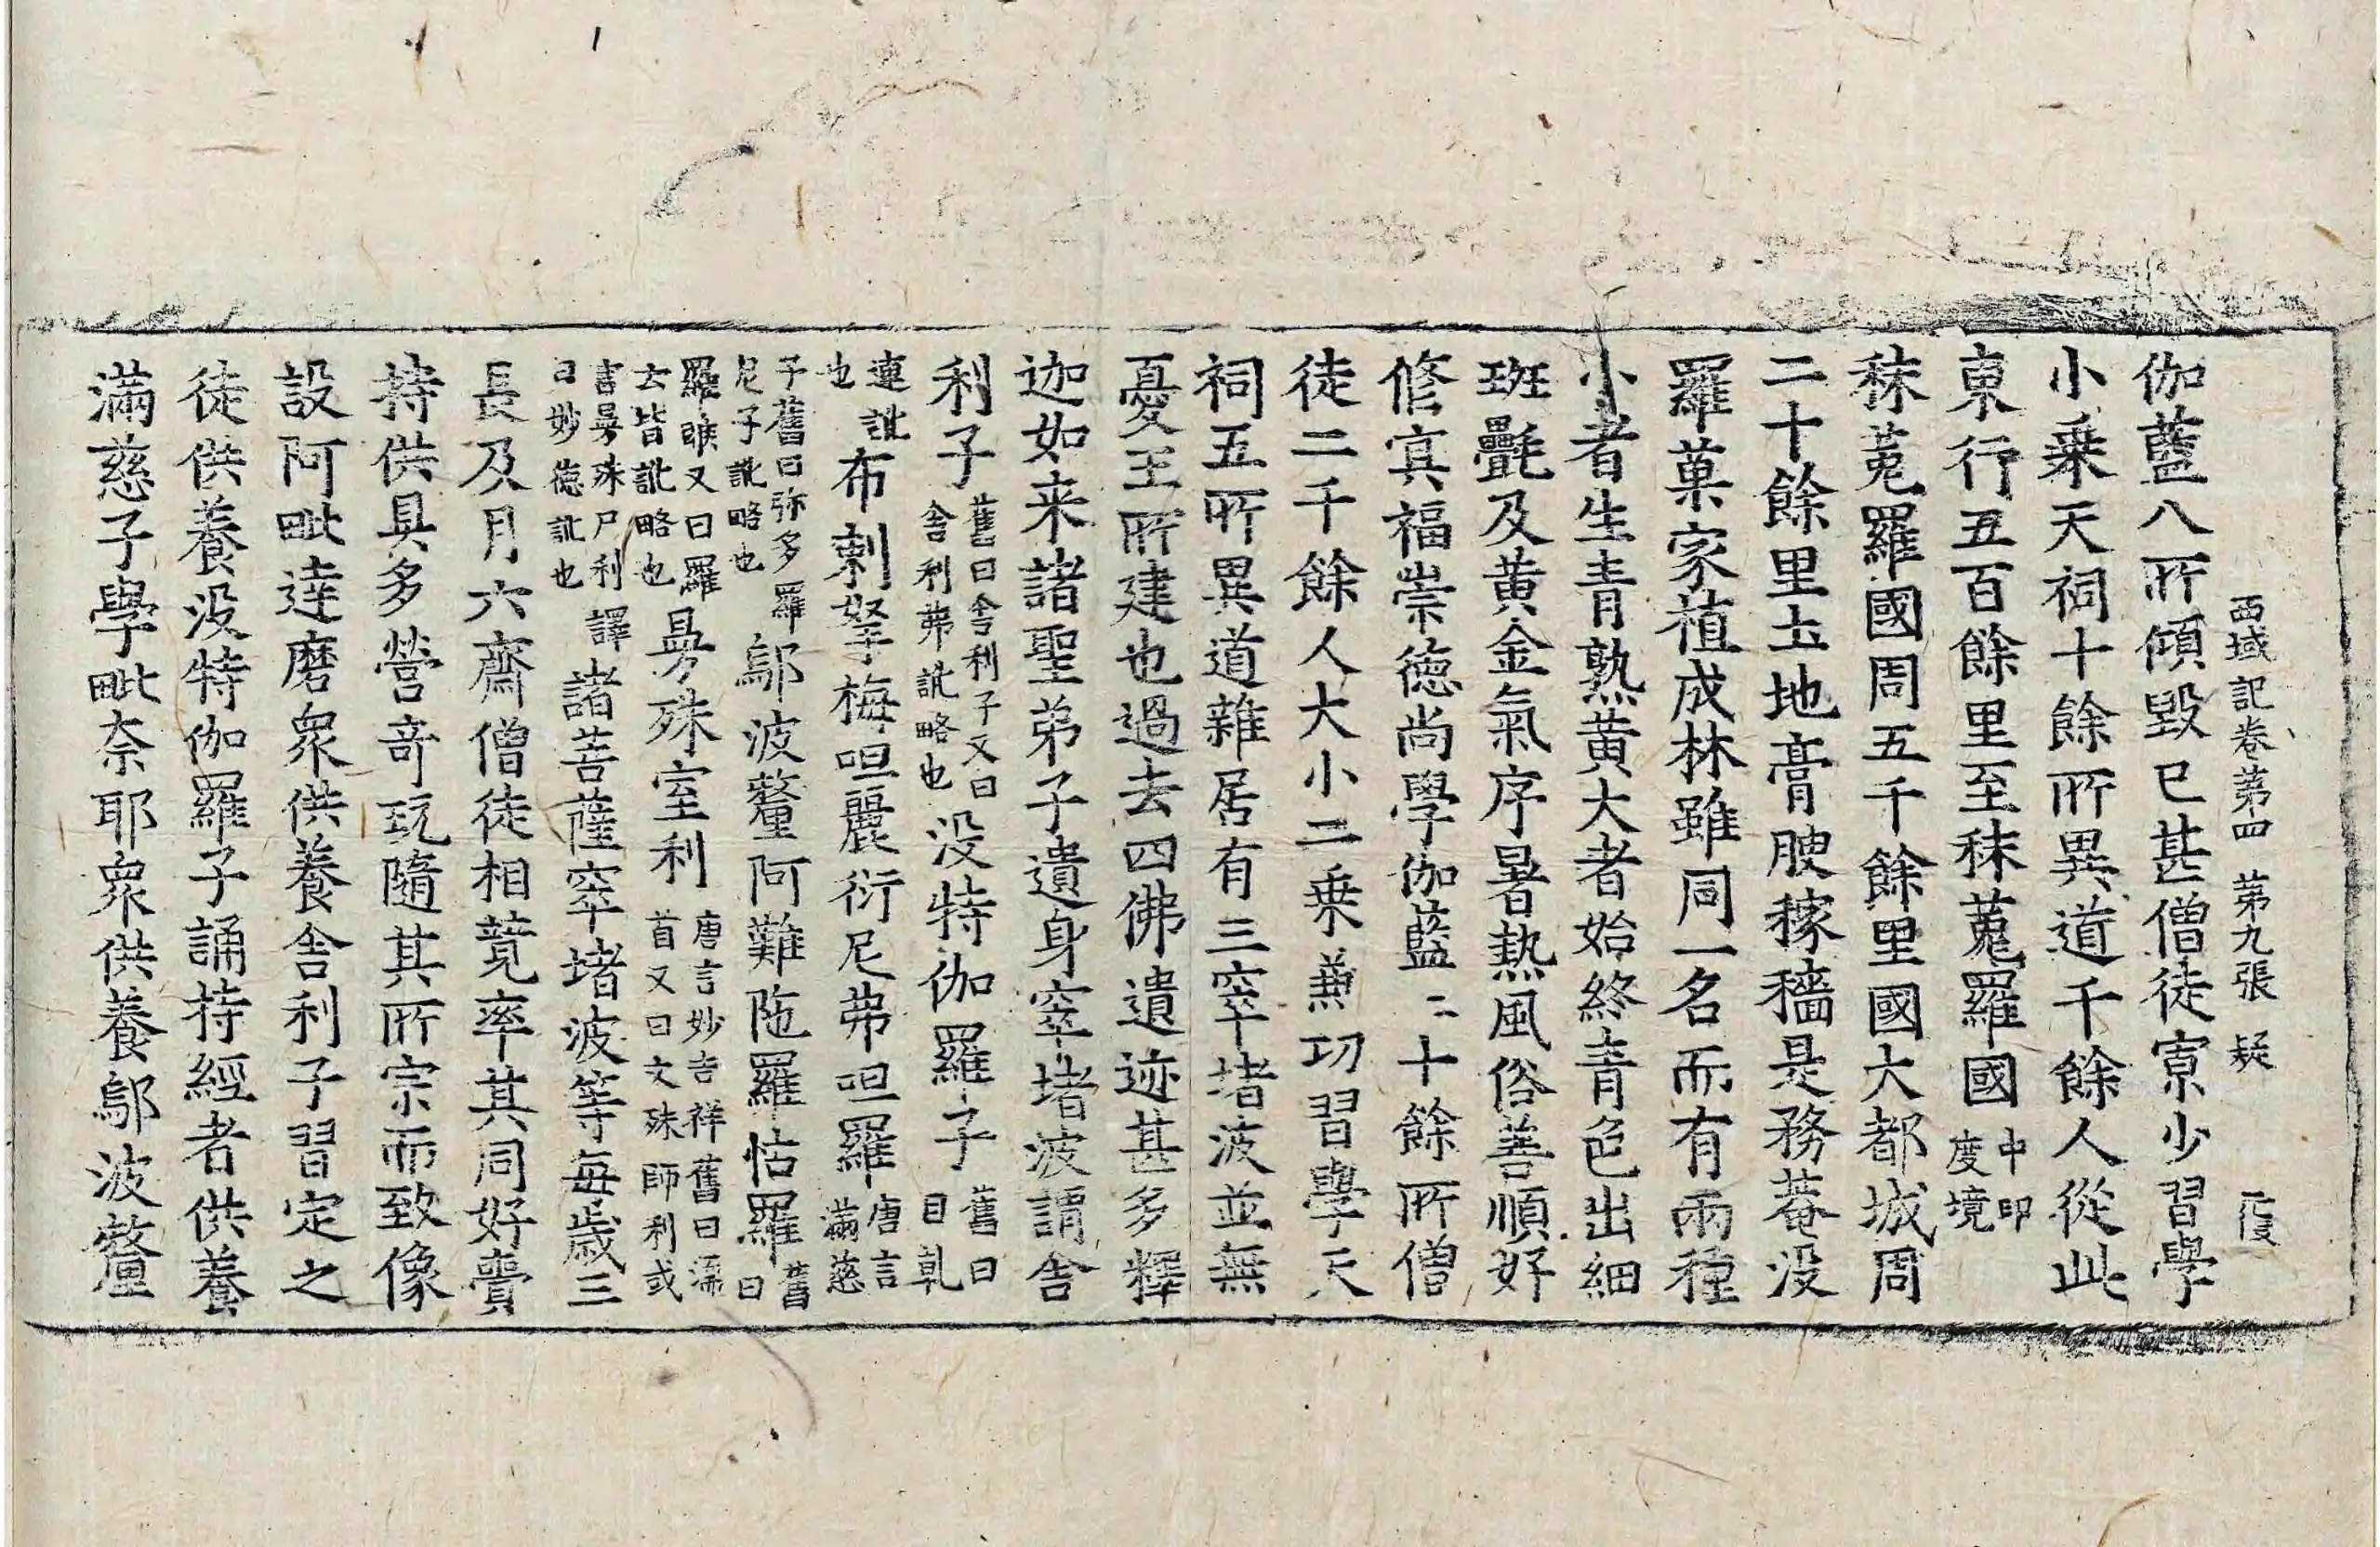 西域記卷第四 第九張 疑
伽藍八所傾毀已甚僧徒寡少習學
小乘天祠十餘所異道千餘人從此
東行五百餘里至秣蒐羅國中印度境
秣菟羅國周五千餘里國大都城周
二十餘里土地膏腴稼穡是務菴没
羅菓家植成林雖同一名而有兩種
小者生青熟黃大者始終青色出細
班㲲及黃金氣序暑熱風俗善順好
修冥福崇德尚學伽藍二十餘所僧
徒二千餘人大小二乘兼功習學天
祠五所異道雜居有三窣堵波並無
憂王所建也過去四佛遺迹甚多釋
迦如来諸聖弟子遺身窣堵波謂舍
利子舊曰舍利子又曰舍利弗訛略也没特伽羅子舊曰目乹
連訛也布剌拏梅呾麗衍尼弗呾羅唐言滿慈
子舊曰弥多羅尼子訛略也鄔波釐阿難陁羅怙羅舊曰
羅睺又曰羅云皆訛略也曼殊室利唐言妙吉祥舊曰濡首又曰文殊師利或
言曼殊尸利譯曰妙德訛也諸菩薩窣堵波等每歲三
長及月六齋僧徒相競率其同好齎
持供具多營奇玩隨其所宗而致像
設阿毗達磨衆供養舍利子習定之
徒供養没特伽羅子誦持經者供養
滿慈子學毗柰耶衆供養鄔波釐